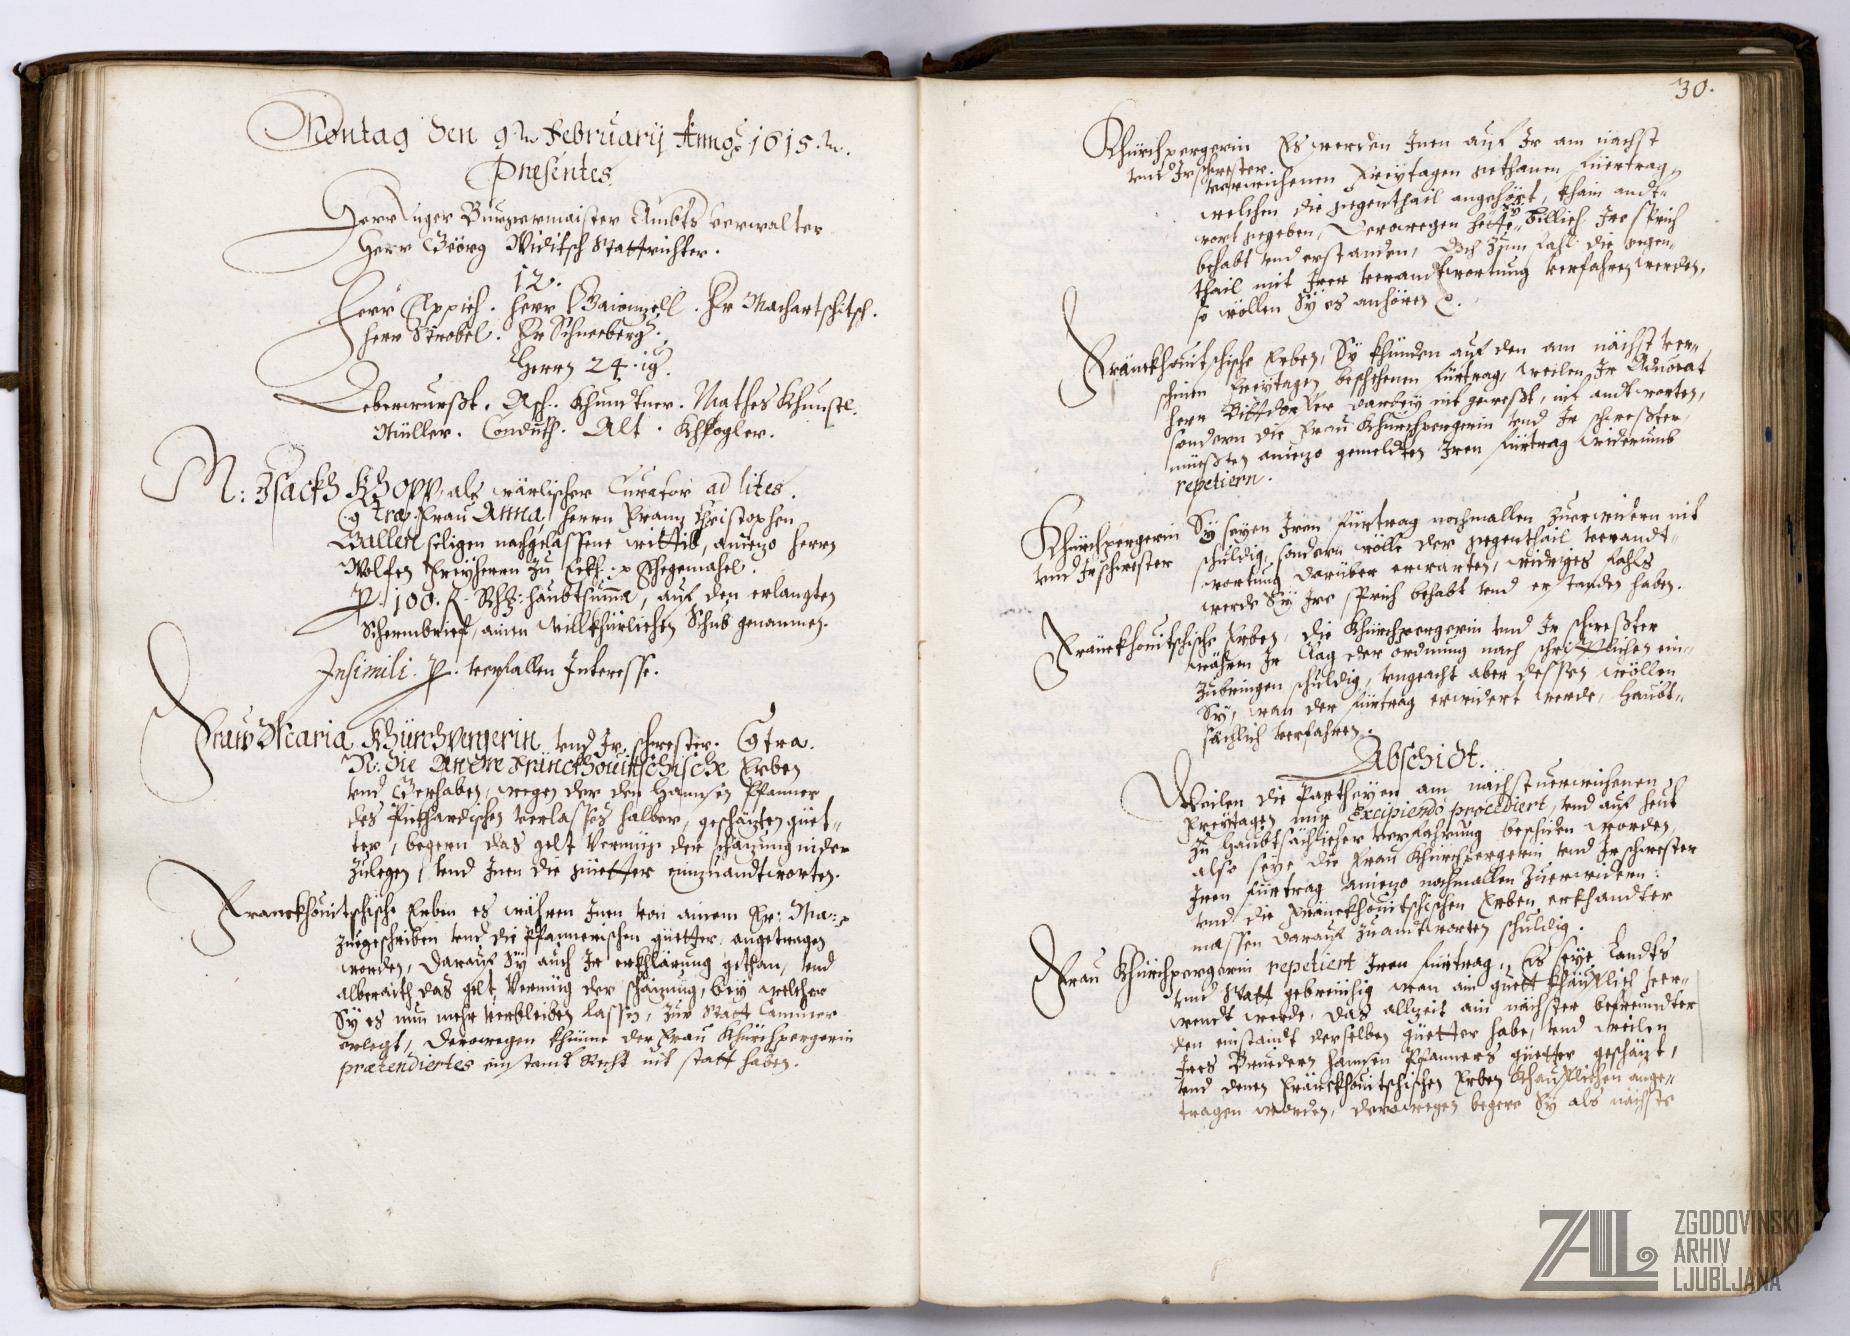 Montag den 9ten February Anno 1615ten.
Presentes.
Herr Burgermaister Ambts verwalter
Herr Geörg Widitsch Stattrichter.
12.
Herr Appich. Herr Gaienzell. Hr Machartschitsch.
Herr Strobel. Hr Schneeberg.
Herrn 24.ig.
Leberwurst. Khundtner. Mathes Khunstl.
Müller. Conduth. Alt. Khogler.
M: Isackh Khopp, als wärlicher Curator ad lites.
Contra. Frau Anna, Herrn Franz Christophen
Gallen seligen nachgelassene wittib, aniezo Herrn
Wolfen Freyherrn zu Ehegemahel.
p. 100. f. haubtsumma, auf den erlangten
Schermbrief, ainen willkhürlichen Schub genommen.
In simili. p. verfallen Interesse.
Fraw Maria Khürchpergerin, vnd Ir schwester. Contra.
N: die Andre Fränckhouitschische Erben
vnd Gerhaben, wegen der den Hannsen Pfanner
des Pickhardischen verlasses halber, geschäzten güet-
ter, begern das gelt vermüg der schäzung nider
zulegen, vnd Inen die güetter einzuandtworten.
Franckhouitschische Erben es währen Inen von ainem Er: Ma:
zuegeschriben vnd die Pfannerischen güetter angetragen
worden, darauf Sy auch Ir erkhlärung gethan, vnd
alberaith das gelt vermüg der schäzung, bey welcher
Sy es nun mehr verbleiben lassen, zur Statt Cammer
erlegt, derowegen khünne der Frau Khürchpergerin
prætendiertes einstandt Recht nit statt haben.
30.
Khürchpergerin Es werden Inen auf Ir am nächst
vnd Ir schwester. verwichenen Freytagen gethanen fürtrag,
welchen die gegenthail angehört, khain andt-
wort gegeben, derowegen hette Sy billich Ire sprich
behabt vnd erstanden, doch zum fahl die gegen-
thail mit Irer verandtwortung verfahren werden,
so wöllen Sy es anhören
Fränckhouitschische Erben, Sy khünden auf den am nächst ver-
schinen Freytagen beschehenen fürtrag, weilen Ir Aduocat
Herr darbey nit gewesst, nit andtworten,
sondern die Frau Khürchpergerin vnd Ir schwesster
müessten aniezo gemeldten Iren fürtrag widerumb
repetiern.
Khürchpergerin Sy seyen Iren fürtrag nochmallen zuerwidern nit
vnd Ir schwester schuldig, sondern wölle der gegenthail verandt-
wortung darüber erwarten, widriges fahls
werde Sy Ire sprich behabt vnd erstanden haben.
Fränckhouitschische Erben, die Khürchpergerin vnd Ir schwesster
währen Ir Clag der ordnung nach schrifftlichen ein-
zubringen schuldig, vngeacht aber dessen wöllen
Sy, wan der fürtrag erwidert werde, haubt-
sächlich verfahren.
Abschidt.
Weilen die Partheyen am nächstuerwichenen
Freytagen nur Excipiendo procediert, vnd auf heut
zu haubtsächlicher verfahrung beschiden worden,
also seye die Frau Khürchpergerin vnd Ir schwester
Iren fürtrag aniezo nochmallen zuerwidern:
vnd die Fränckhouitschischen Erben erkhandter
massen darauf zuandtworten schuldig.
Frau Khürchpergerin repetiert Iren fürtrag, Es seye Landts
vnd Statt gebreuchig wan ain guett khäufflich ver-
wendt werde, das allzeit ain nächster befreundter
den einstandt derselben güetter habe, vnd weilen
Ires Bruedern Hannsen Pfanners güetter geschäzt,
vnd denen Fränckhouitschischen Erben khaufflichen ange-
tragen worden, derowegen begere Sy als näheste
ZAL
ZGODOVINSKI
ARHIV
LJUBLJANA